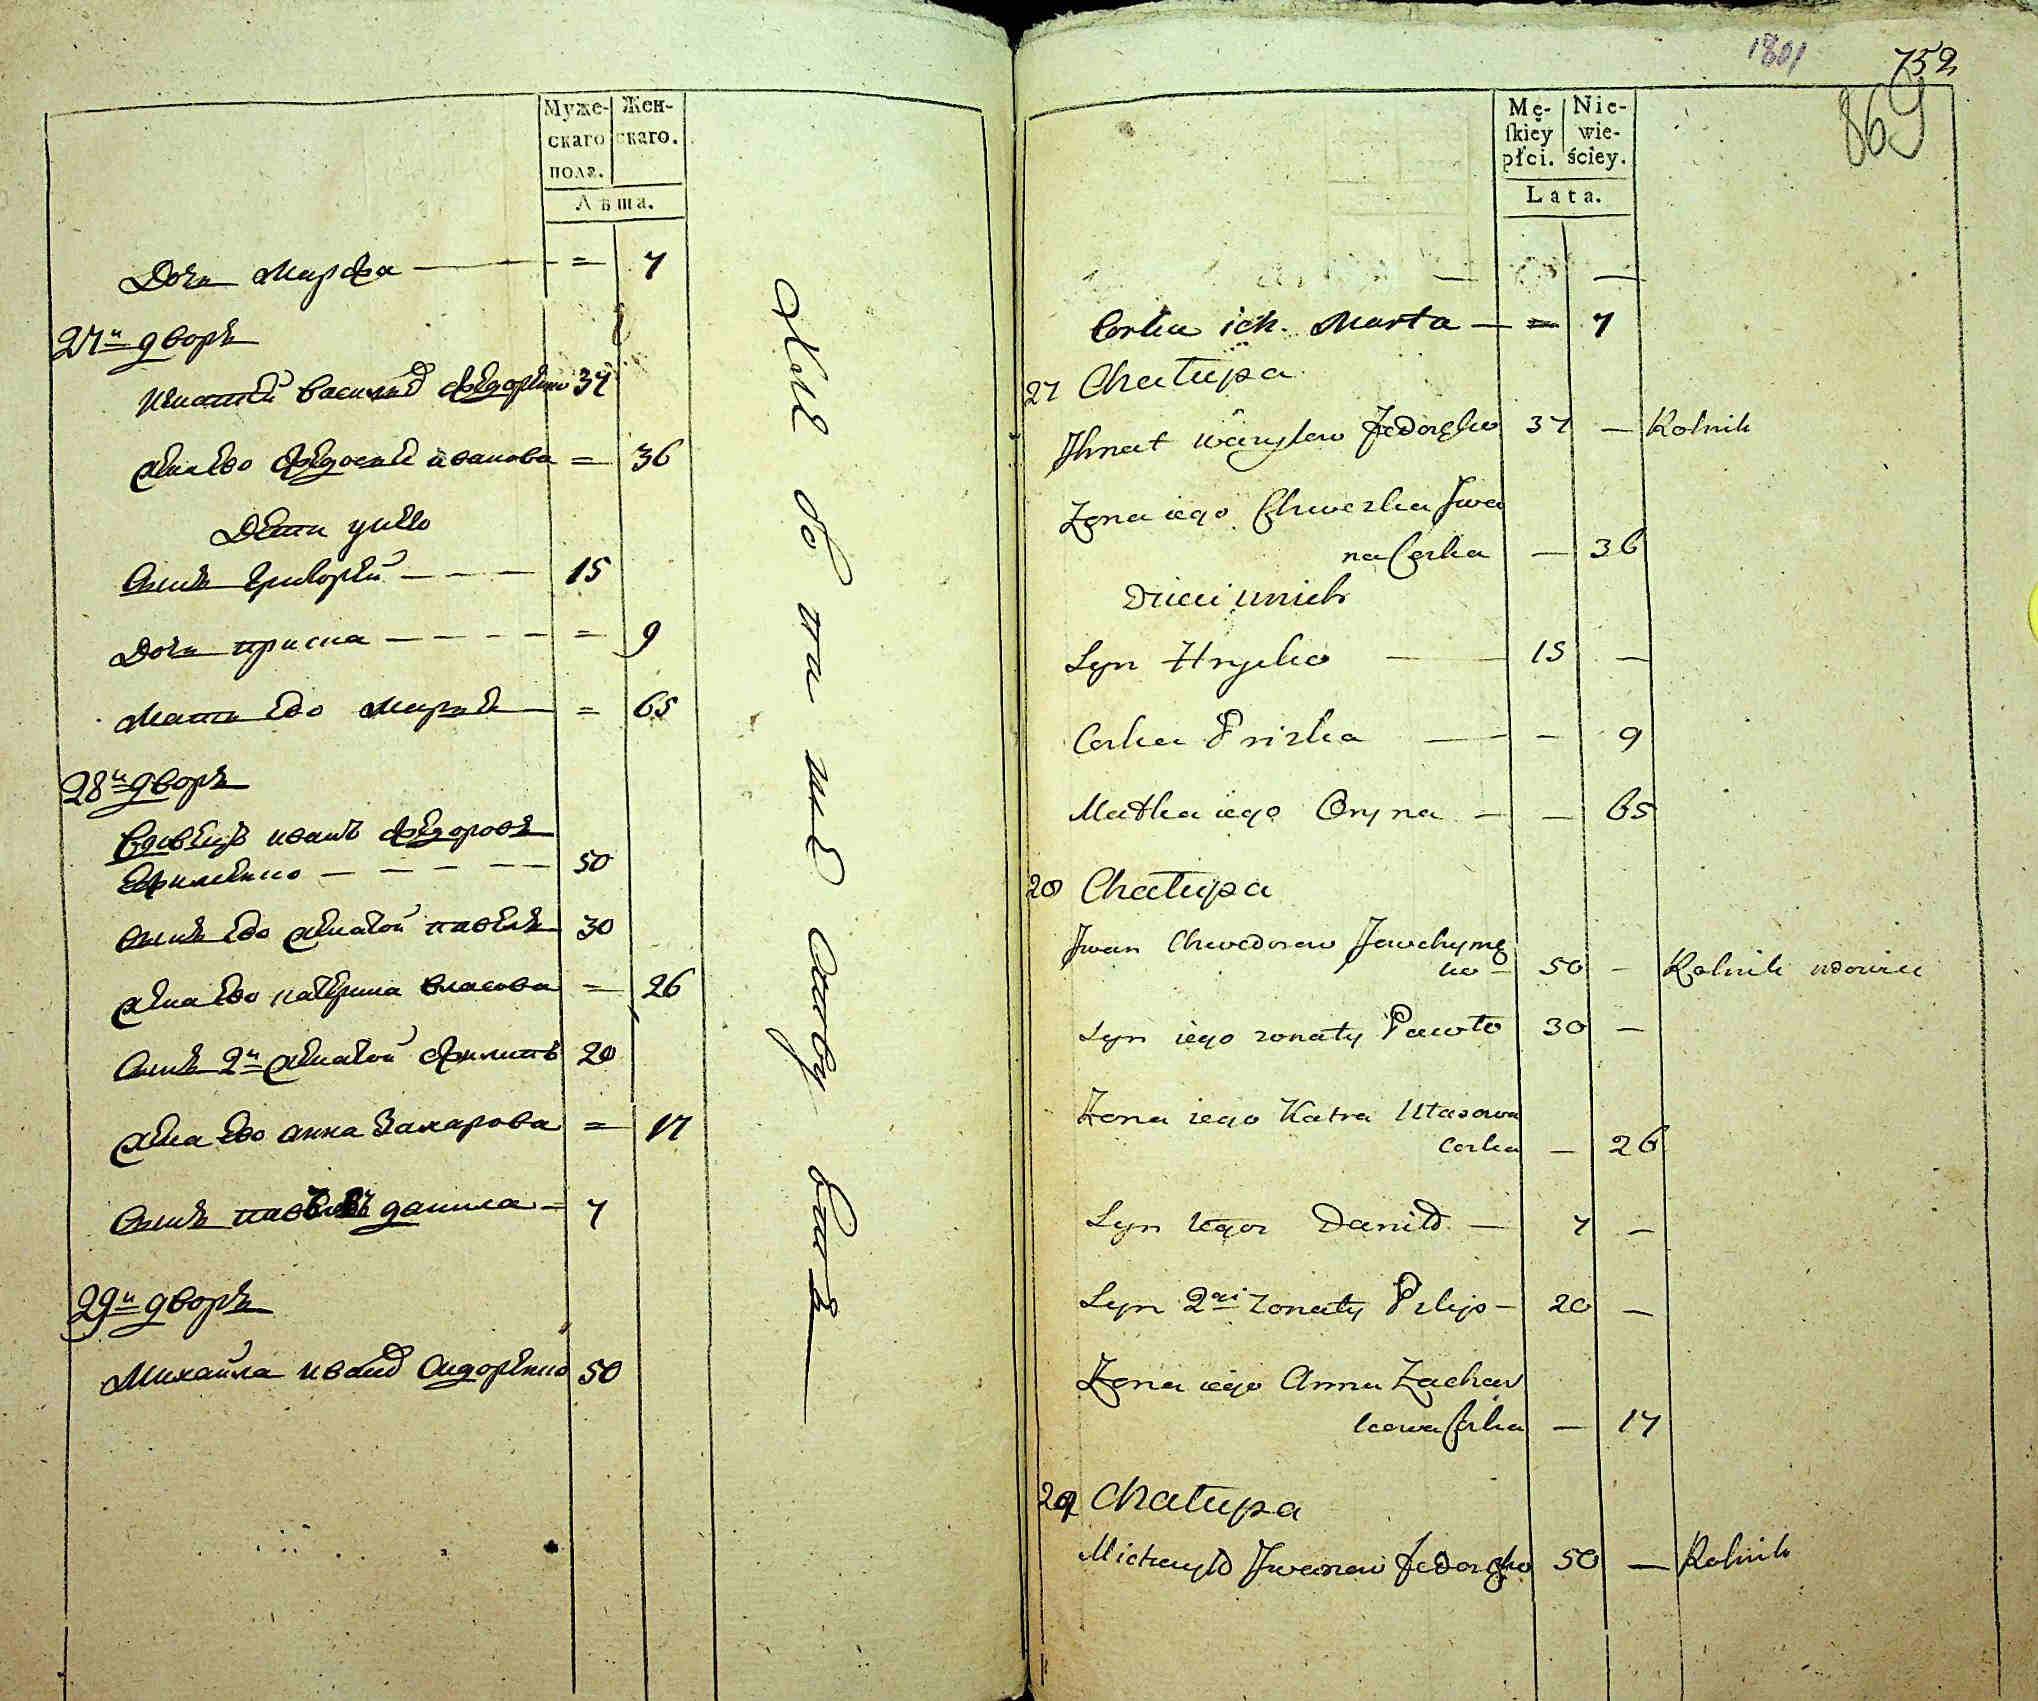 Муже-
скаго
пола.
Жен-
скаго.
Лѣта.
Дочь Марфа — = 7
27й дворъ
Игнатей Василиев Федоренко 37
жена ево Федосья иванова = 36
Дети у нево
Сынъ Григорей — — — 15
Дочь приска — — — — = 9
Мать ево Марья — = 65
28й дворъ
Вдовецъ иванъ Федоровъ
Ефименко — — — — 50
Сынъ ево женатой павелъ 30
жена ево катерина власова = 26
Сынъ 2й женатой Филипъ 20
жена ево анна Захарова = 17
Сынъ данила = 7
29й дворъ
Михайла иванов Сидоренко 50
1801
752
869
Mę-
ſkiey
płci.
Nie-
wie-
ściey.
Lata.
Corka ich Marta — = 7
27 Chałupa
Ihnat Wasylow Fedoręko 37 — Rolnik
Zona iego Chweśka Iwa
na Corka — 36
Dzieci u nich
Syn Hryćko — 15 —
Corka Priśka — — 9
Matka iego Oryna — — 65
28 Chałupa
Iwan Chwedorow Jawchymę
ko — 50 — Rolnik wdowiec
Syn iego zonaty Pawło 30 —
Zona iego Katra Ułasowa
Corka — 26
Syn tegoz Daniło — 7 —
Syn 2gi zonaty Pilip — 20 —
Zona iego Anna Zachar
kowa Corka — 17
29 Chałupa
Michayło Iwanow Sidoręko 50 — Rolnik